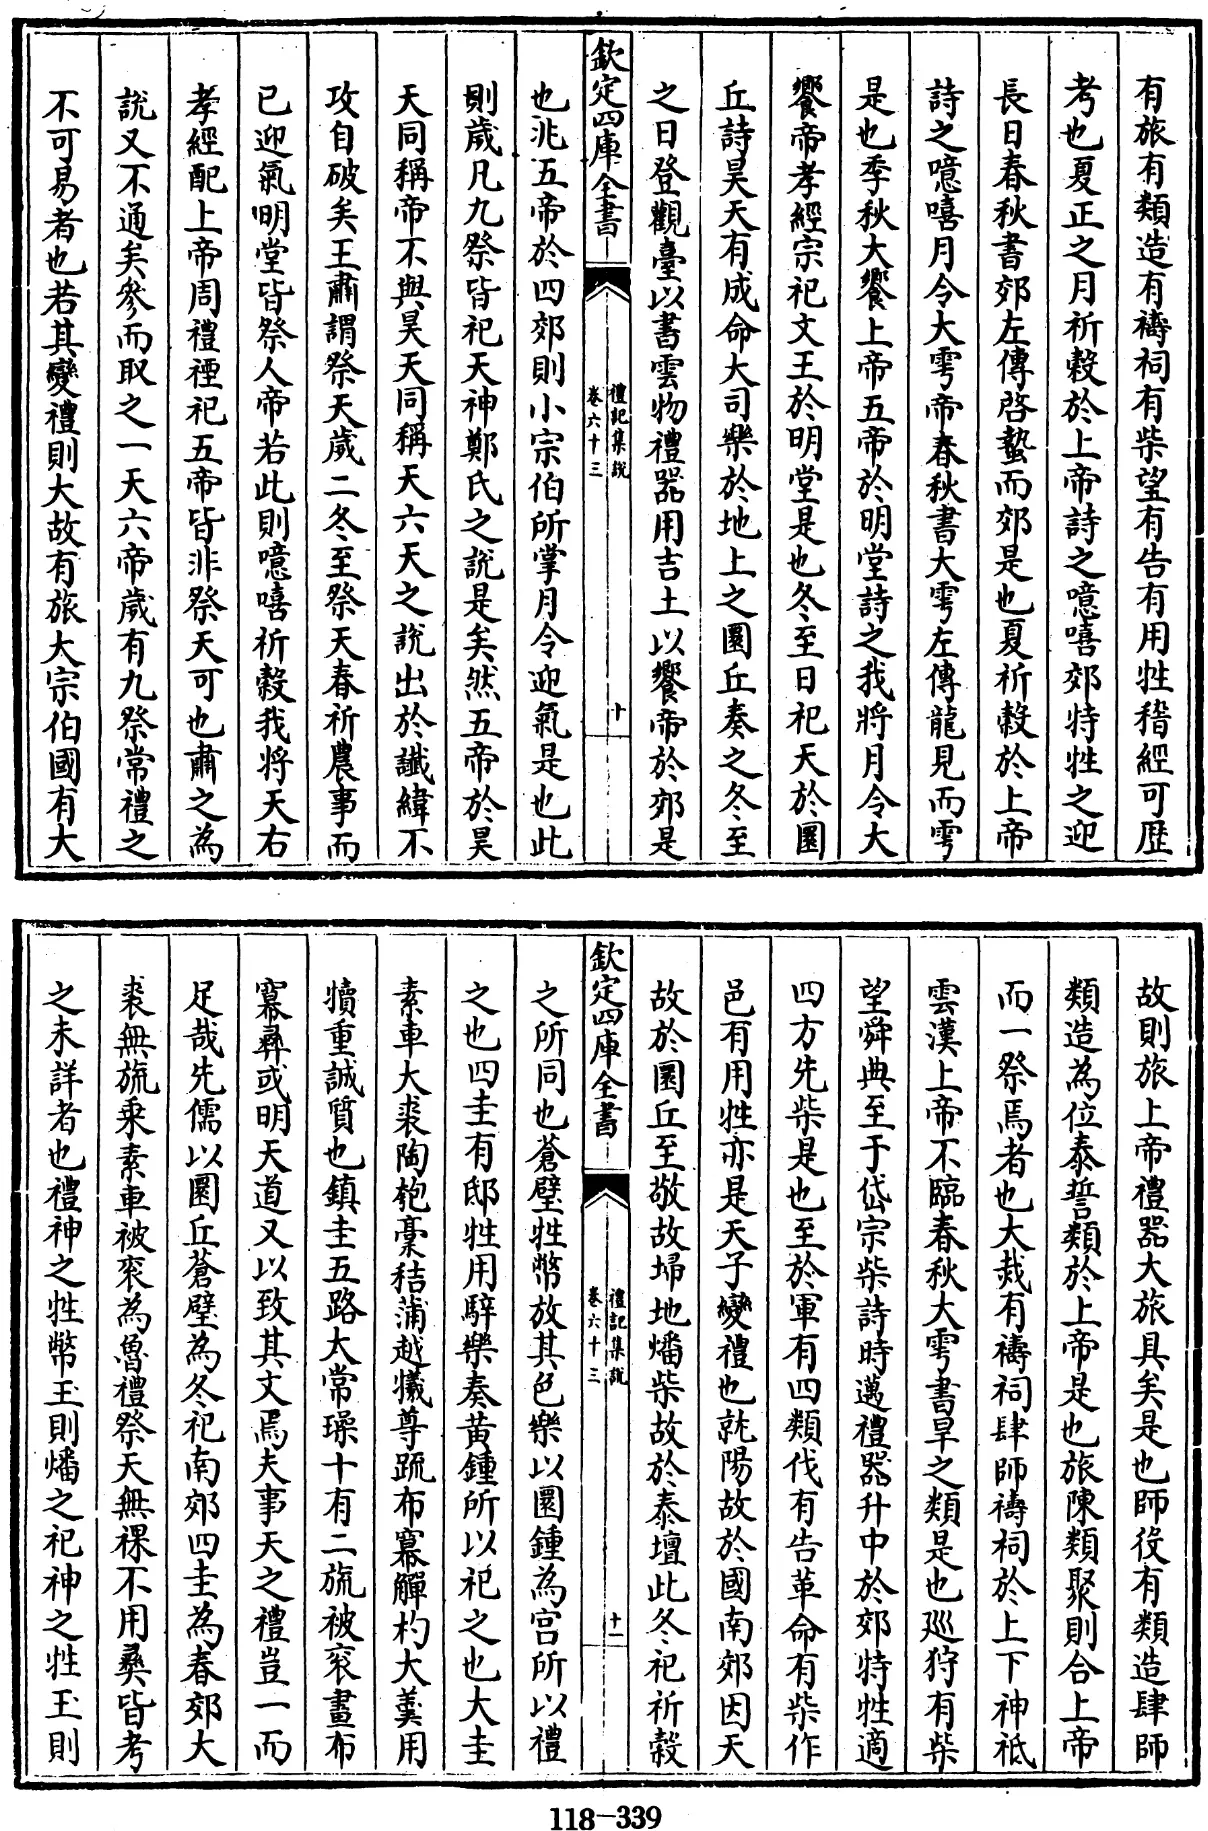 有旅有類造有禱祠有柴望有告有用牲稽經可歷
考也夏正之月祈穀於上帝詩之噫嘻郊特牲之迎
長日春秋書郊左傳啓蟄而郊是也夏祈穀於上帝
詩之噫嘻月令大雩帝春秋書大雩左傳龍見而雩
是也季秋大饗上帝五帝於明堂詩之我將月令大
饗帝孝經宗祀文王於明堂是也冬至日祀天於圜
丘詩昊天有成命大司樂於地上之圜丘奏之冬至
之日登觀臺以書雲物禮器用吉土以饗帝於郊是
欽定四庫全書
禮記集說
卷六十三
十
也兆五帝於四郊則小宗伯所掌月令迎氣是也此
則歲凡九祭皆祀天神鄭氏之說是矣然五帝於昊
天同稱帝不與昊天同稱天六天之說出於讖緯不
攻自破矣王肅謂祭天歲二冬至祭天春祈農事而
已迎氣明堂皆祭人帝若此則噫嘻祈穀我將天右
孝經配上帝周禮禋祀五帝皆非祭天可也肅之為
說又不通矣參而取之一天六帝歲有九祭常禮之
不可易者也若其變禮則大故有旅大宗伯國有大
故則旅上帝禮器大旅具矣是也師役有類造肆師
類造為位泰誓類於上帝是也旅陳類聚則合上帝
而一祭焉者也大烖有禱祠肆師禱祠於上下神祗
雲漢上帝不臨春秋大雩書旱之類是也廵狩有柴
望舜典至于岱宗柴詩時邁禮器升中於郊特牲適
四方先柴是也至於軍有四類伐有告革命有柴作
邑有用牲亦是天子變禮也就陽故於國南郊因天
故於圜丘至敬故埽地燔柴故於泰壇此冬祀祈穀
欽定四庫全書
禮記集說
卷六十三
十一
之所同也蒼璧牲幣放其色樂以圜鍾為宫所以禮
之也四圭有邸牲用騂樂奏黃鍾所以祀之也大圭
素車大裘陶匏稾秸蒲越犧尊疏布羃觶杓大羹用
犢重誠質也鎮圭五路太常璪十有二旒被衮畫布
羃彛或明天道又以致其文焉夫事天之禮豈一而
足哉先儒以圜丘蒼璧為冬祀南郊四圭為春郊大
裘無旒乘素車被衮為魯禮祭天無祼不用彛皆考
之未詳者也禮神之牲幣玉則燔之祀神之牲玉則
118-339